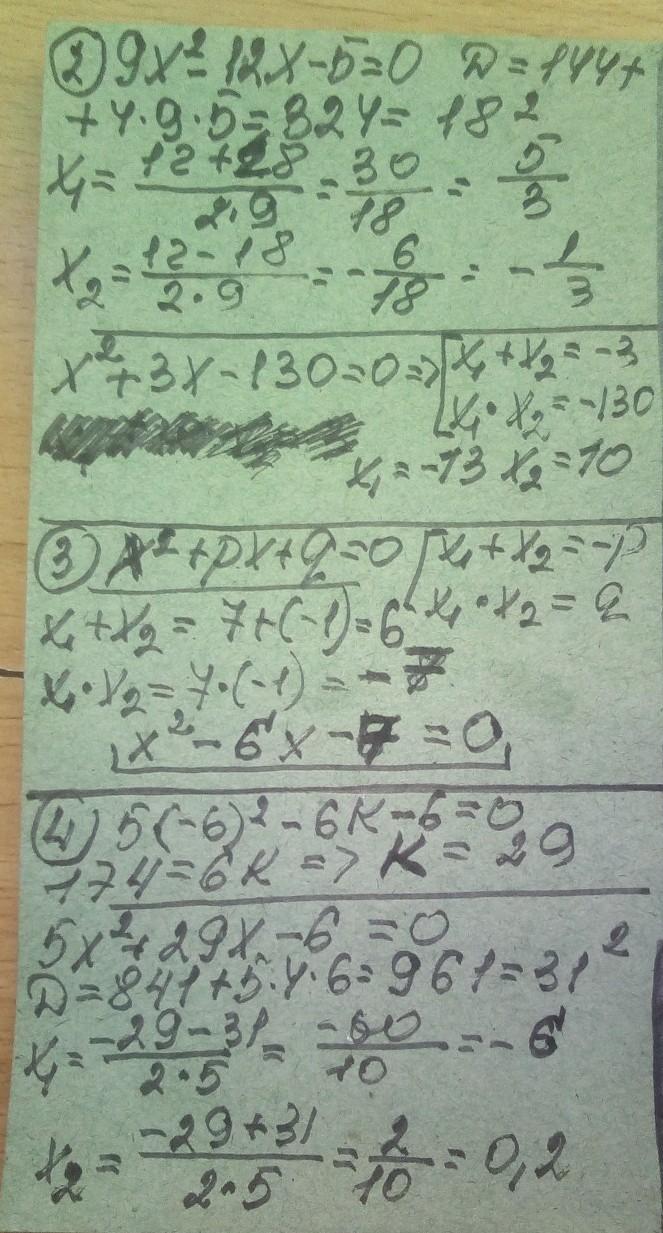 ② 9x² - 12x - 5 = 0 D = 144 +
+ 4·9·5 = 324 = 18²
x₁ = (12 + 18)/(2·9) = 30/18 = 5/3
x₂ = (12 - 18)/(2·9) = -6/18 = -1/3
x² + 3x - 130 = 0 => [x₁ + x₂ = -3
x₁ · x₂ = -130
x₁ = -13 x₂ = 10
③ x² + px + q = 0 [x₁ + x₂ = -p
x₁ · x₂ = q
x₁ + x₂ = 7 + (-1) = 6
x₁ · x₂ = 7·(-1) = -7
x² - 6x - 7 = 0
④ 5(-6)² - 6K - 6 = 0
174 = 6K => K = 29
5x² + 29x - 6 = 0
D = 841 + 5·4·6 = 961 = 31²
x₁ = (-29 - 31)/(2·5) = -60/10 = -6
x₂ = (-29 + 31)/(2·5) = 2/10 = 0,2